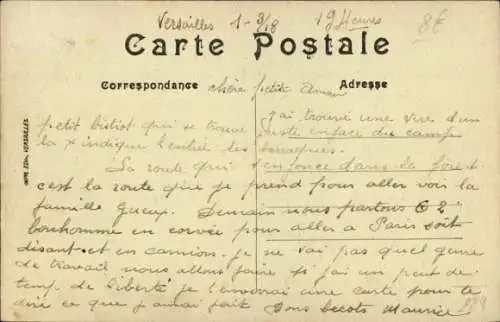 Versailles 1-3/18 19 Heures
8€
Carte Postale
Correspondance
Adresse
chère petite
j'ai trouvé une vue d'un
petit bistrot qui se trouve juste en face du camp
la x indique l'entrée des baraques.
La route qui s'enfonce dans la forêt
c'est la route que je prend pour aller voir la
famille Gueux. Demain nous partons 62
bonhomme en corvée pour aller a Paris soit
disant et en camion. je ne sai pas quel genre
de travail nous allons faire si j'ai un peut de
temp de liberté je t'enverrai une carte pour te
dire ce que j'aurai fait Bons becots Maurice
IMP. EDIT. VERSAILLES